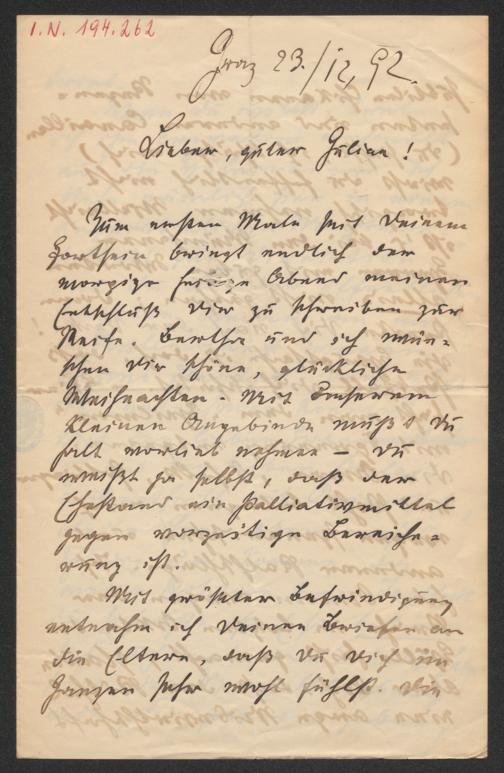 I.N. 194.262
Graz 23./12.92.
Lieber, guter Julian!
Zum ersten Male seit Deinem
Fortsein bringt endlich der
morgige heilige Abend meinen
Entschluß Dir zu schreiben zur
Reife. Bertha und ich wün-
schen Dir schöne, glückliche
Weihnachten. Mit Unserem
kleinen Angebinde mußt Du
halt vorlieb nehmen – Du
weißt ja selbst, daß der
Ehestand ein Palliativmittel
gegen vorzeitige Bereiche-
rung ist.
Mit größter Befriedigung
entnahm ich Deinen Briefen an
die Eltern, daß Du Dich im
Ganzen sehr wohl fühlst. Die